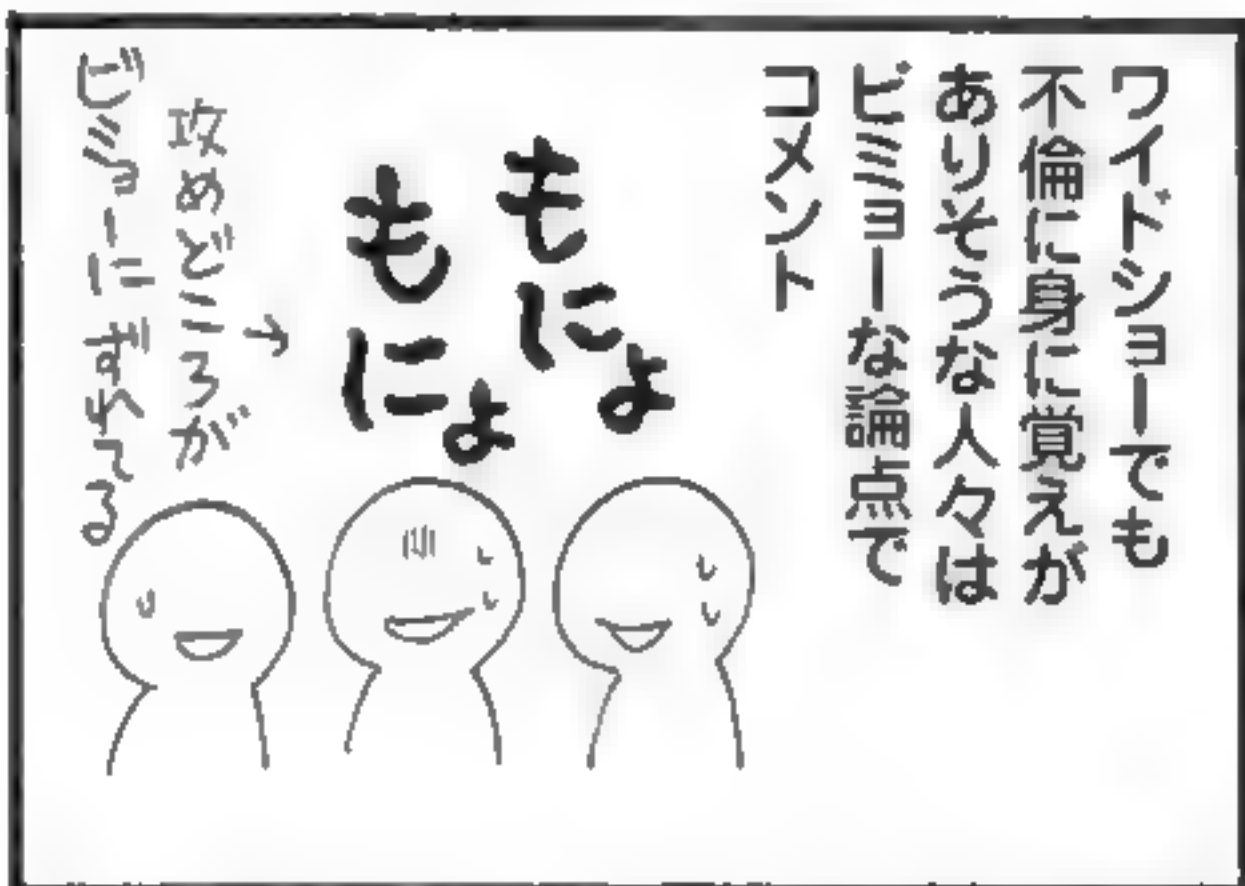 ワイドショーでも
不倫に身に覚えが
ありそうな人々は
ビミョーな論点で
コメント
もにょ
もにょ
攻めどころが
ビミョーにずれてる